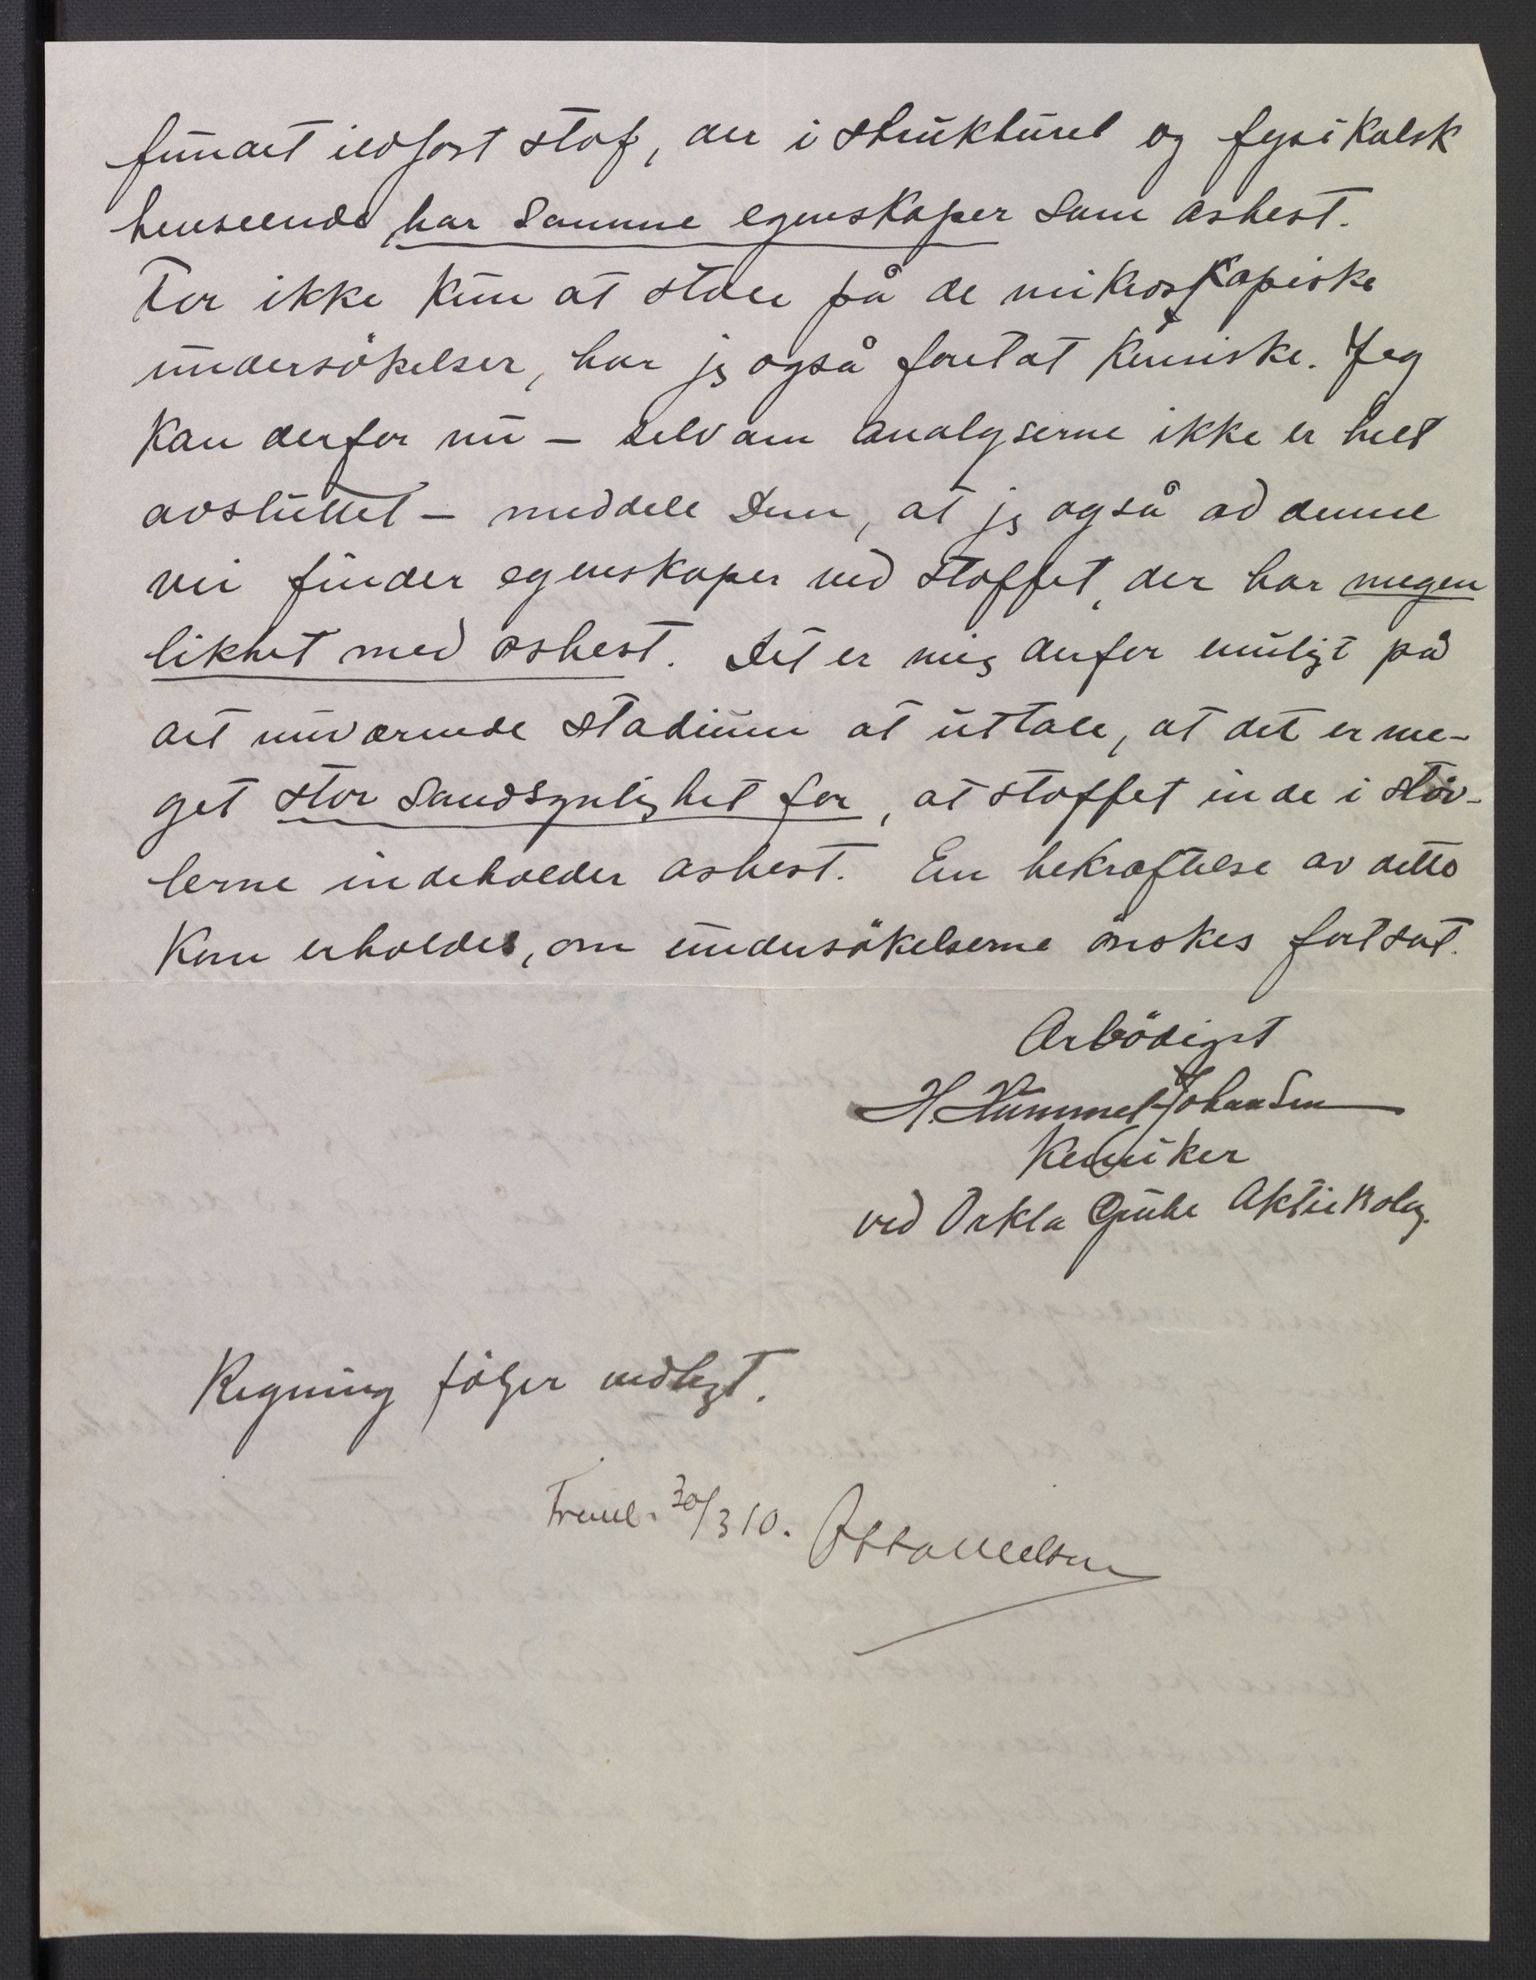 fundet ildfast stof, der i strukturel og fysikalsk
henseende har samme egenskaper som asbest.
For ikke kun at stole på de mikroskopiske
undersökelser, har jg også foretat kemiske. Jeg
kan derfor nu – selv om analyserne ikke er helt
avsluttet – meddele Dem, at jg også ad denne
vei finder egenskaper ved stoffet, der har megen
likhet med asbest. Det er mig derfor muligt på
det nuværende stadium at uttale, at det er me-
get stor sandsynlighet for, at stoffet inde i støv-
lerne indeholder asbest. En bekræftelse av dette
kan erholdes, om undersökelserne önskes fortsat.
Ærbödigst
H. Hummel-Johansen
Kemiker
ved Orkla Grube Aktiebolag.
Regning fölger vedlagt.
30/3 10. Otto Nielsen